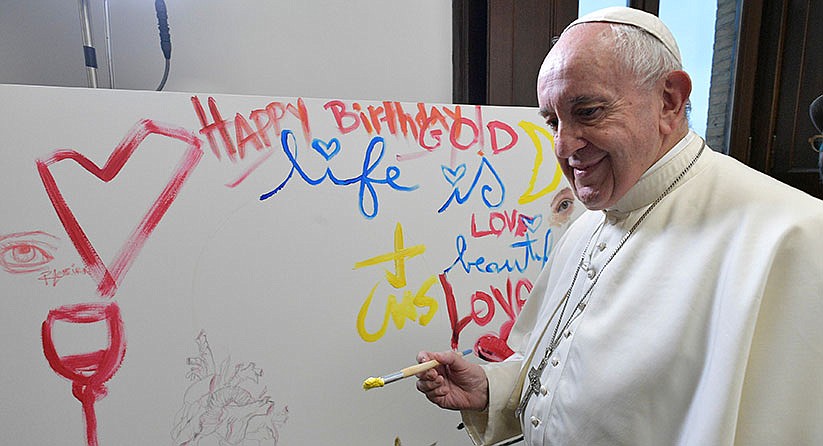 Happy Birthday
GOD
life is
LOVE
beautiful
Love